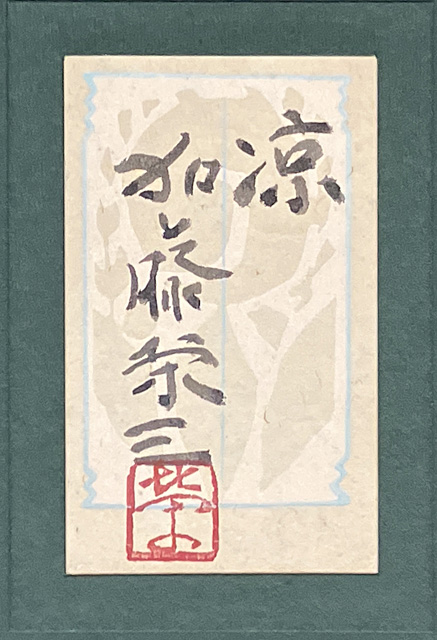 凉
加藤栄三